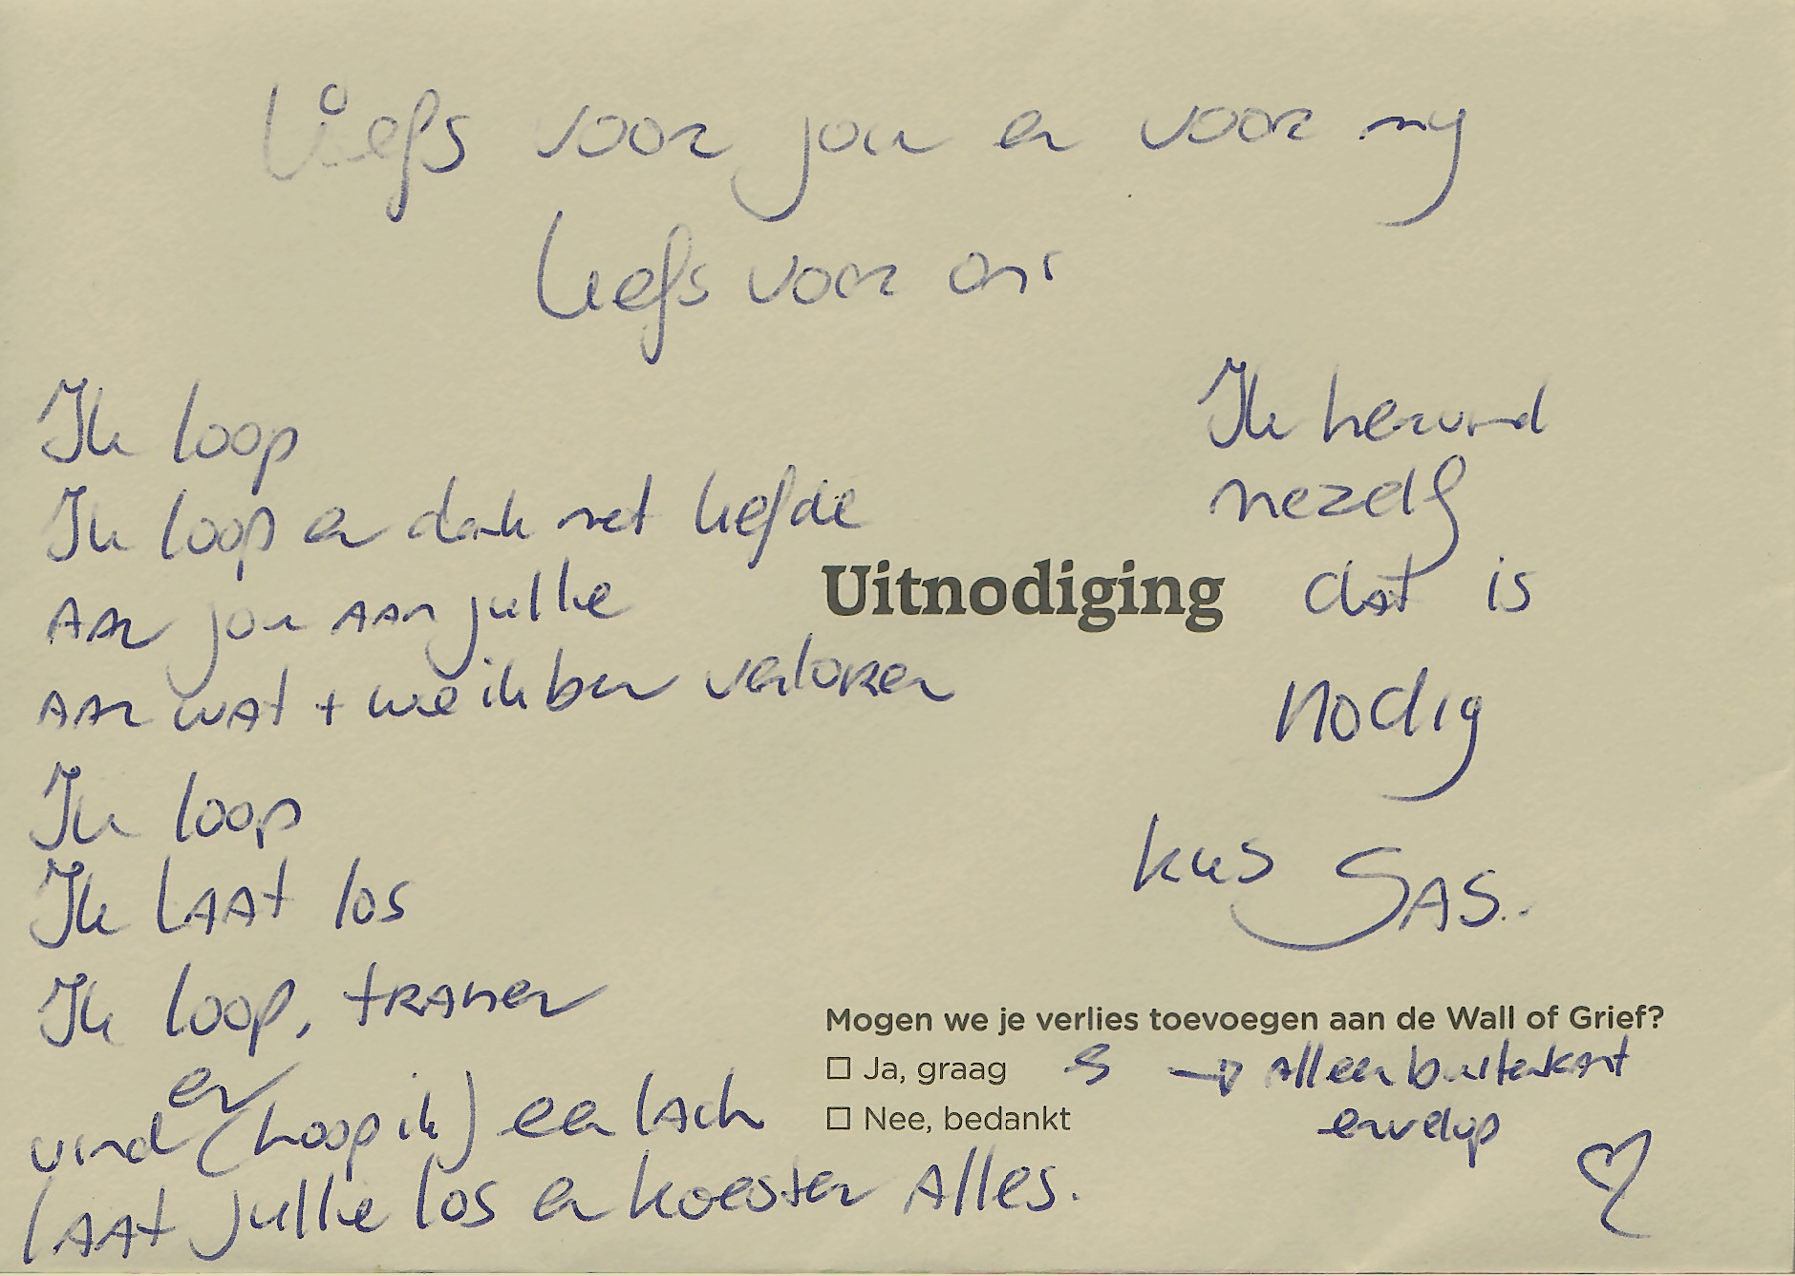 Liefs voor jou en voor my
Liefs voor ons
Ik loop
Ik loop en dank met liefde
AAN jou AAN jullie
AAN WAT + wie ik ben verloren
Ik loop
Ik LAAT los
Ik loop, TRANEN
en
vind (hoop ik) een lach
LAAT jullie los en koester Alles.
Ik hervind
mezelf
dat is
nodig
kus SAS..
Uitnodiging
Mogen we je verlies toevoegen aan de Wall of Grief?
☐ Ja, graag → Alleen buitenkant
☐ Nee, bedankt envelop